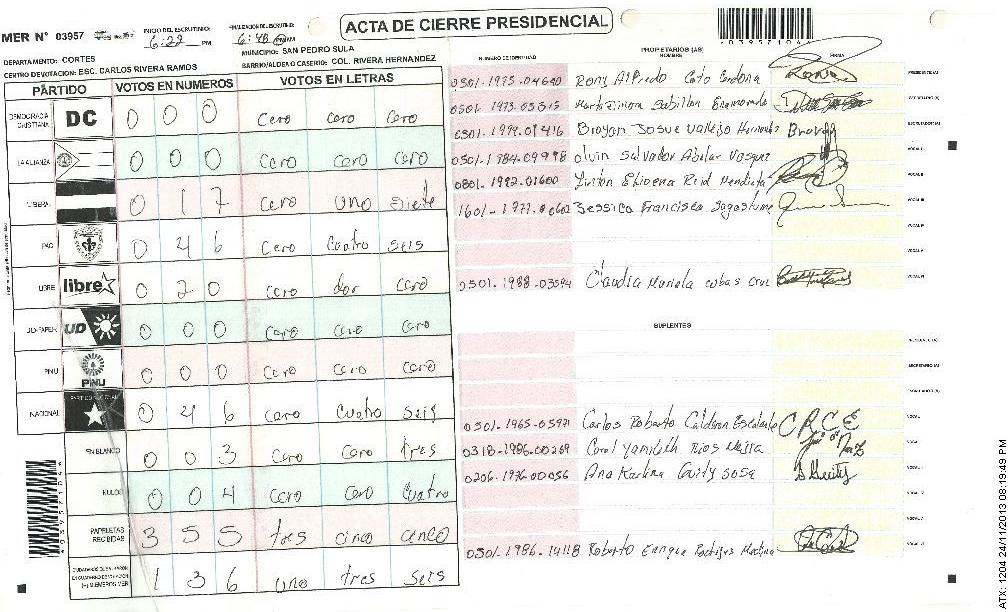 ACTA DE CIERRE PRESIDENCIAL
MER N° 03957
INICIO DEL ESCRUTINIO:
6:22 PM
FINALIZACION DEL ESCRUTINIO:
6:48 PM
DEPARTAMENTO: CORTES
MUNICIPIO: SAN PEDRO SULA
CENTRO DE VOTACION: ESC. CARLOS RIVERA RAMOS
BARRIO/ALDEA O CASERIO: COL. RIVERA HERNANDEZ
PARTIDO VOTOS EN NUMEROS VOTOS EN LETRAS
DEMOCRACIA CRISTIANA DC 0 0 0 Cero cero Cero
LA ALIANZA 0 0 0 Cero Cero Cero
LIBERAL 0 1 7 Cero Uno Siete
PAC 0 4 6 Cero Cuatro Seis
LIBRE libre 0 2 0 Cero dos Cero
UD-FAPER UD 0 0 0 Cero Cero Cero
PINU PINU 0 0 0 Cero Cero Cero
NACIONAL PARTIDO NACIONAL 0 4 6 Cero Cuatro Seis
EN BLANCO 0 0 3 Cero Cero tres
NULOS 0 0 4 Cero Cero Cuatro
PAPELETAS RECIBIDAS 3 5 5 tres cinco cinco
1 3 6 uno tres seis
NUMERO DE IDENTIDAD
PROPIETARIOS (AS)
NOMBRE
FIRMA
0501-1975-04600 Rony Alfredo PRESIDENTE(A)
Sabillon Enamorado SECRETARIO (A)
0501-1999-01416 Brayan Josue Vallejo ESCRUTADOR(A)
0501-1984-09998 Olvin Salvador Vasquez VOCAL I
0801-1992-01600 Reid Mendieta VOCAL II
Jessica Francisca Sagastume VOCAL III
VOCAL IV
VOCAL V
0501-1988-03594 Claudia Mariela Cubas Cruz VOCAL VI
SUPLENTES
PRESIDENTE(A)
SECRETARIO (A)
ESCRUTADOR (A)
0501-1965-05971 Carlos Roberto Calderon Escalante C R C E VOCAL I
0318-1986-00269 Carol Yamileth Rios Mejia
Ana Karina Guity Sosa
VOCAL IV
VOCAL V
0501-1986-14118 Roberto Enrique Rodriguez Medina VOCAL VI
ATX: 1204 24/11/2013 08:19:49 PM